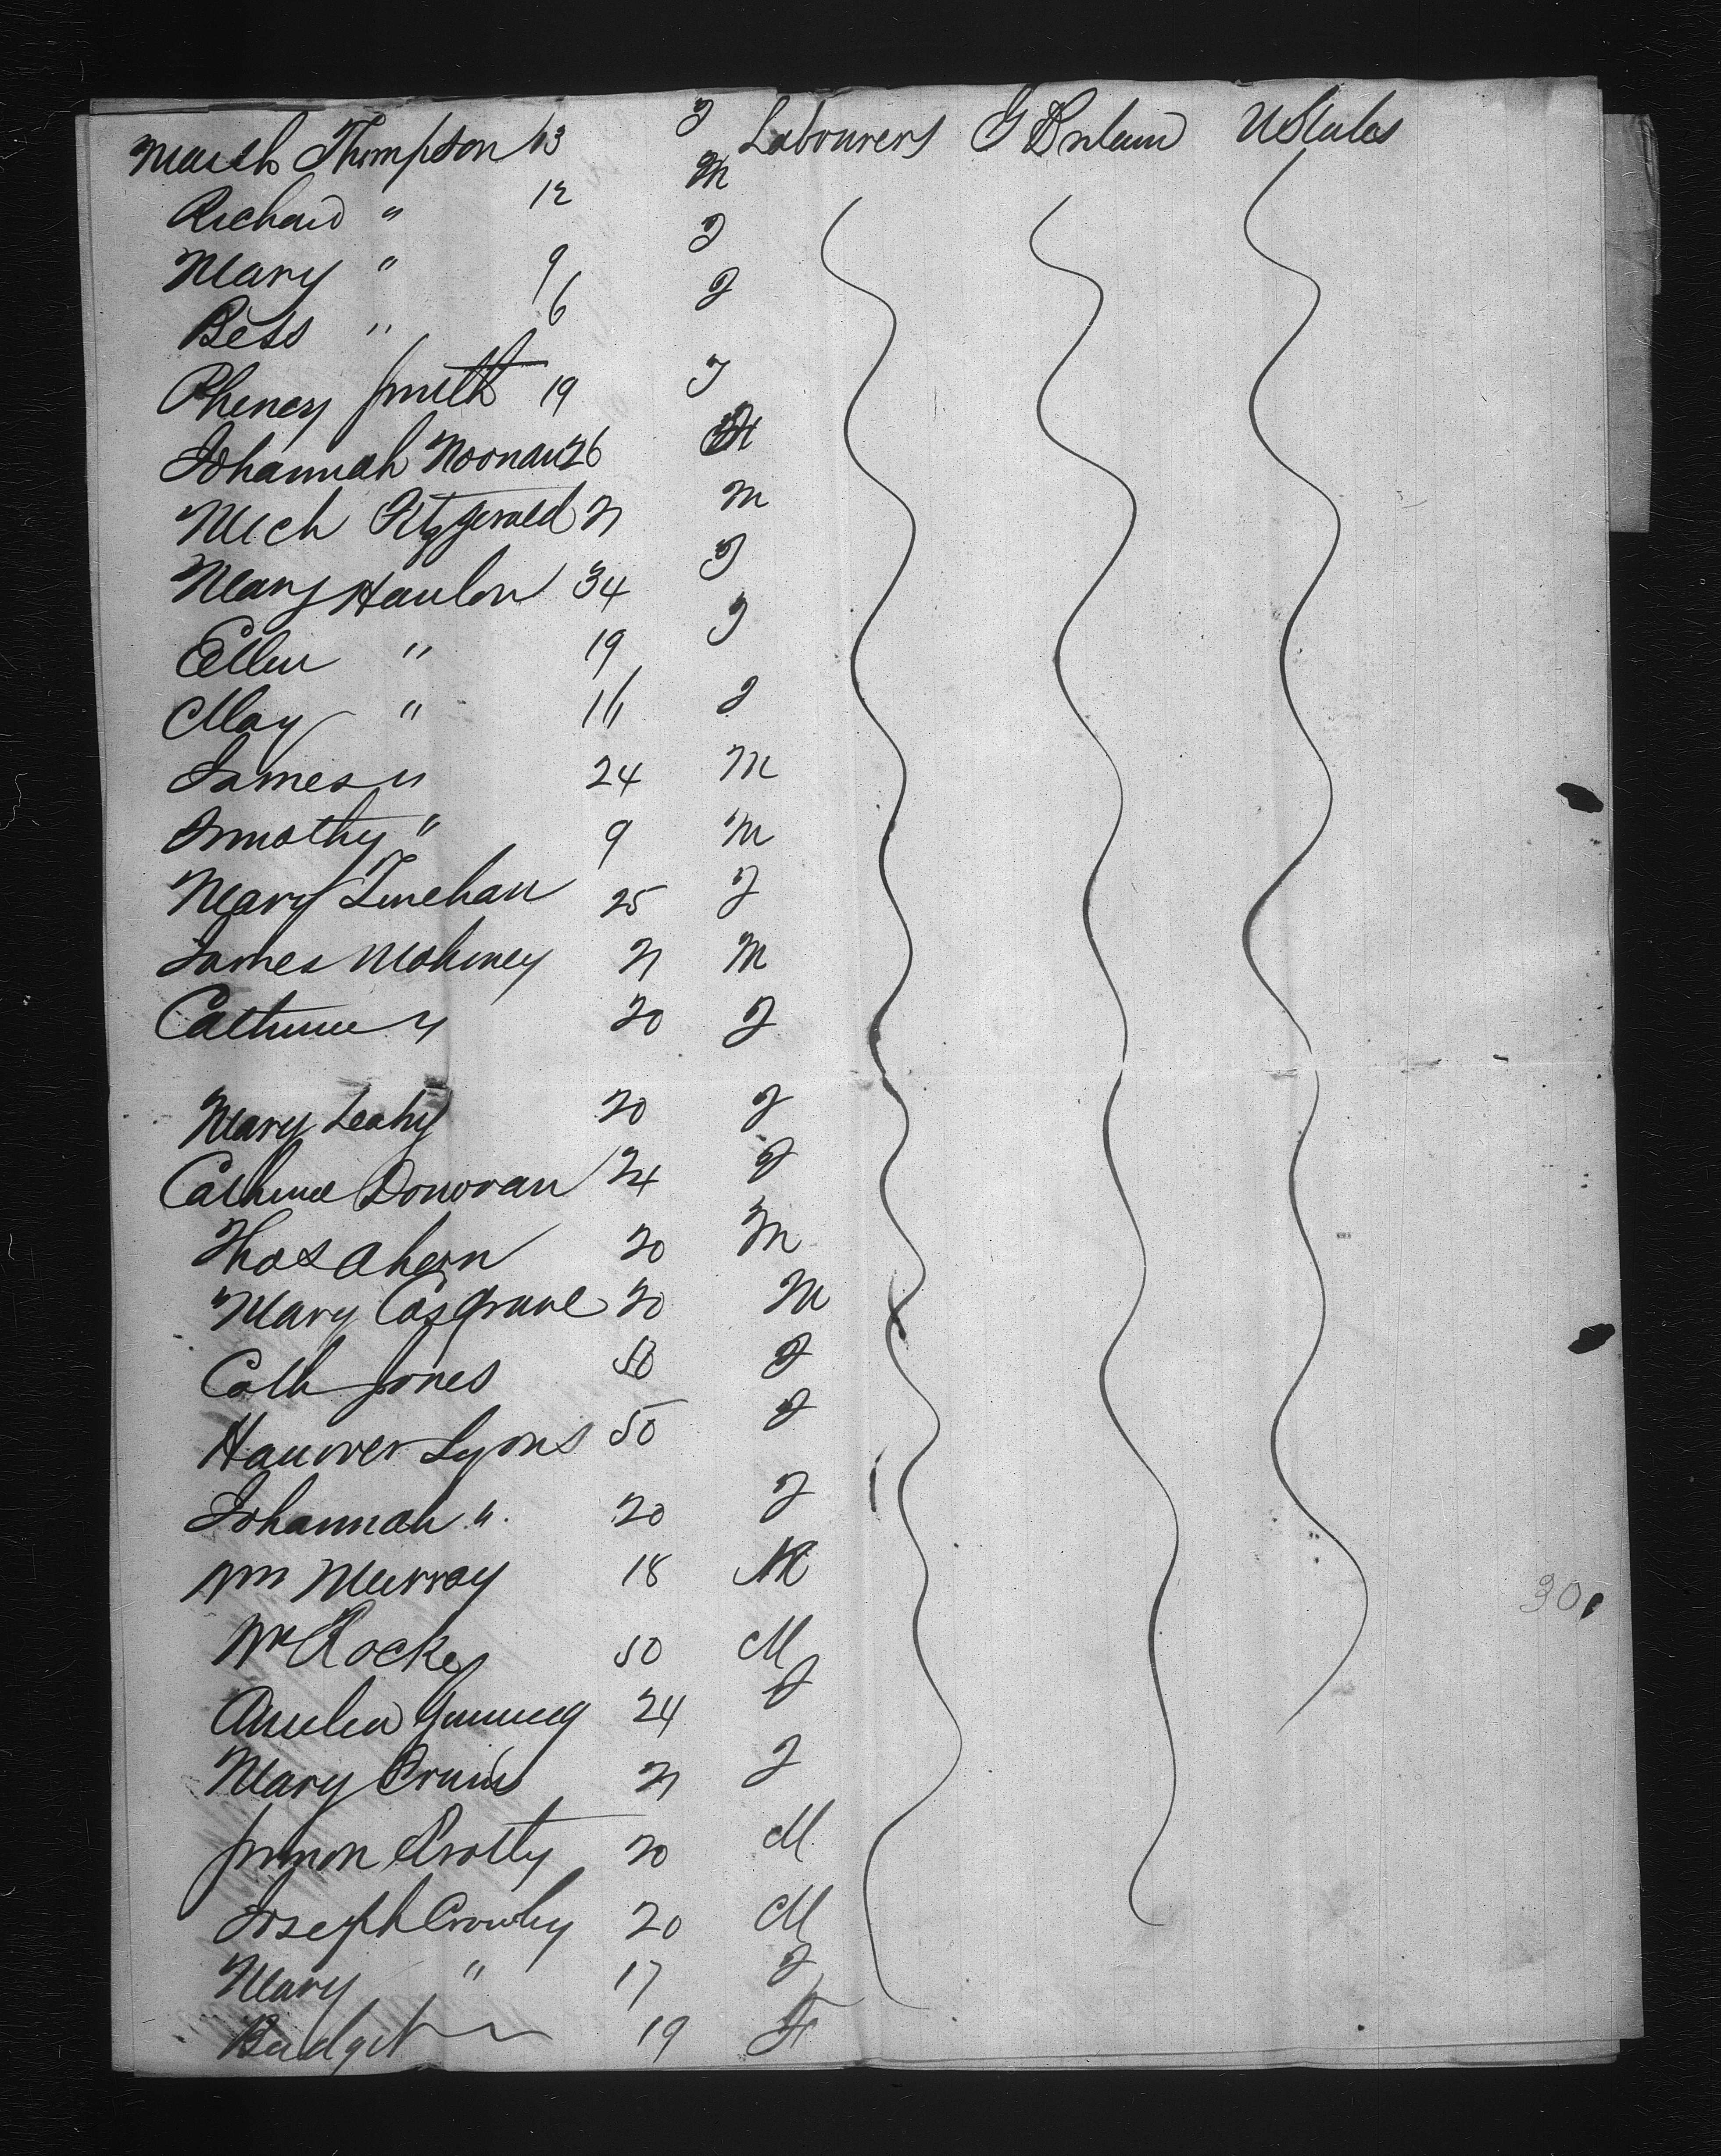 Marsh Thompson 13 F Labourers G Britain U States
Richard " 12 M
Mary " 9 F
Bess " 6 F
Pheney Smith 19 F
Johannah Noonan 26
Mich Fitzgerald 21 M
Mary Hanlon 34 F
Ellen " 19 F
May " 16 F
James " 24 M
Timothy " 9 M
Mary Linehan 25 F
James Mahoney 21 M
Catherine " 20 F
Mary Leahy 20 F
Catherine Donovan 24 F
Thos Ahern 20 M
Mary Cosgrave 20 M
Cath Jones 50 F
Hanover Lyons 50 F
Johannah " 20 F
Wm Murray 18 M
Wm Rocke 50 M
Amelia Gunning 24 F
Mary 21 F
Simon Crotty 20 M
Joseph Crowley 20 M
Mary " 17 F
Bridget 19 F
30